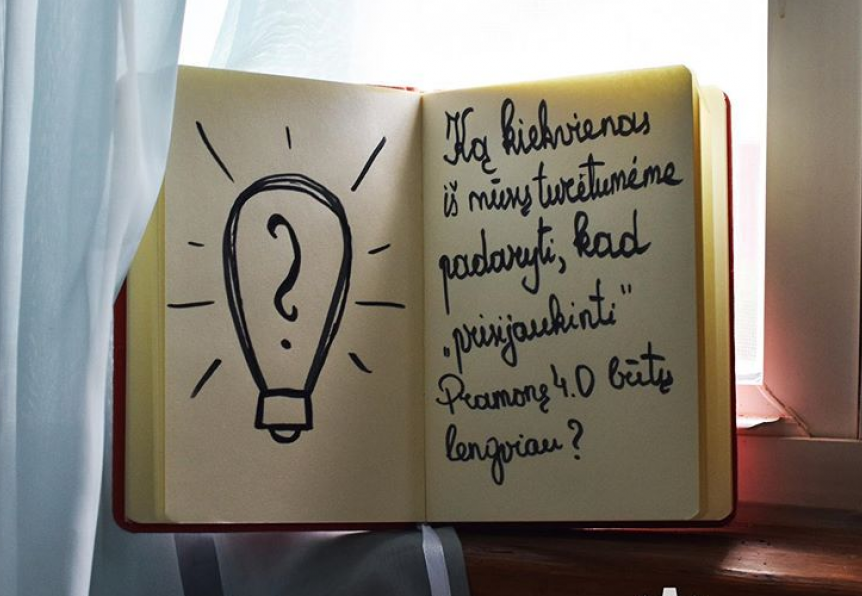 ?
Ką kiekvienas
iš mūsų turėtumėme
padaryti, kad
„prisijaukinti"
Pramonę 4.0 būtų
lengviau?